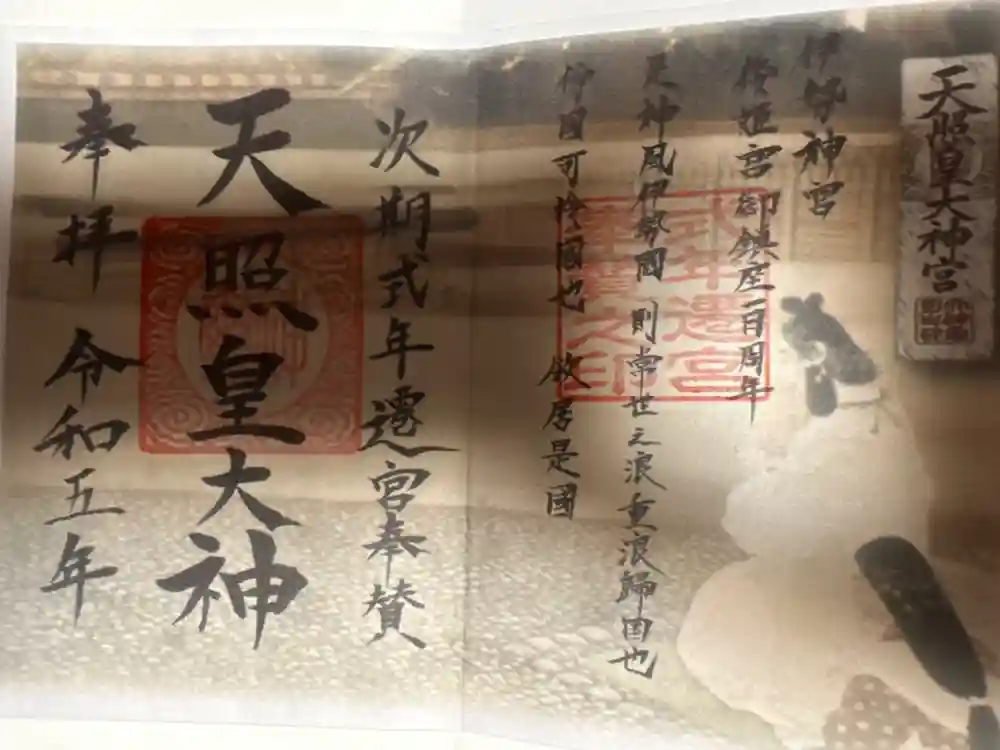 天照皇大神宮
伊勢神宮
倭姫宮御鎮座一百周年
是神風伊勢國則常世之浪重浪歸国也
傍國可怜國也 欲居是國
式年遷宮
奉賛之印
次期式年遷宮奉賛
天照皇大神
奉拝 令和五年